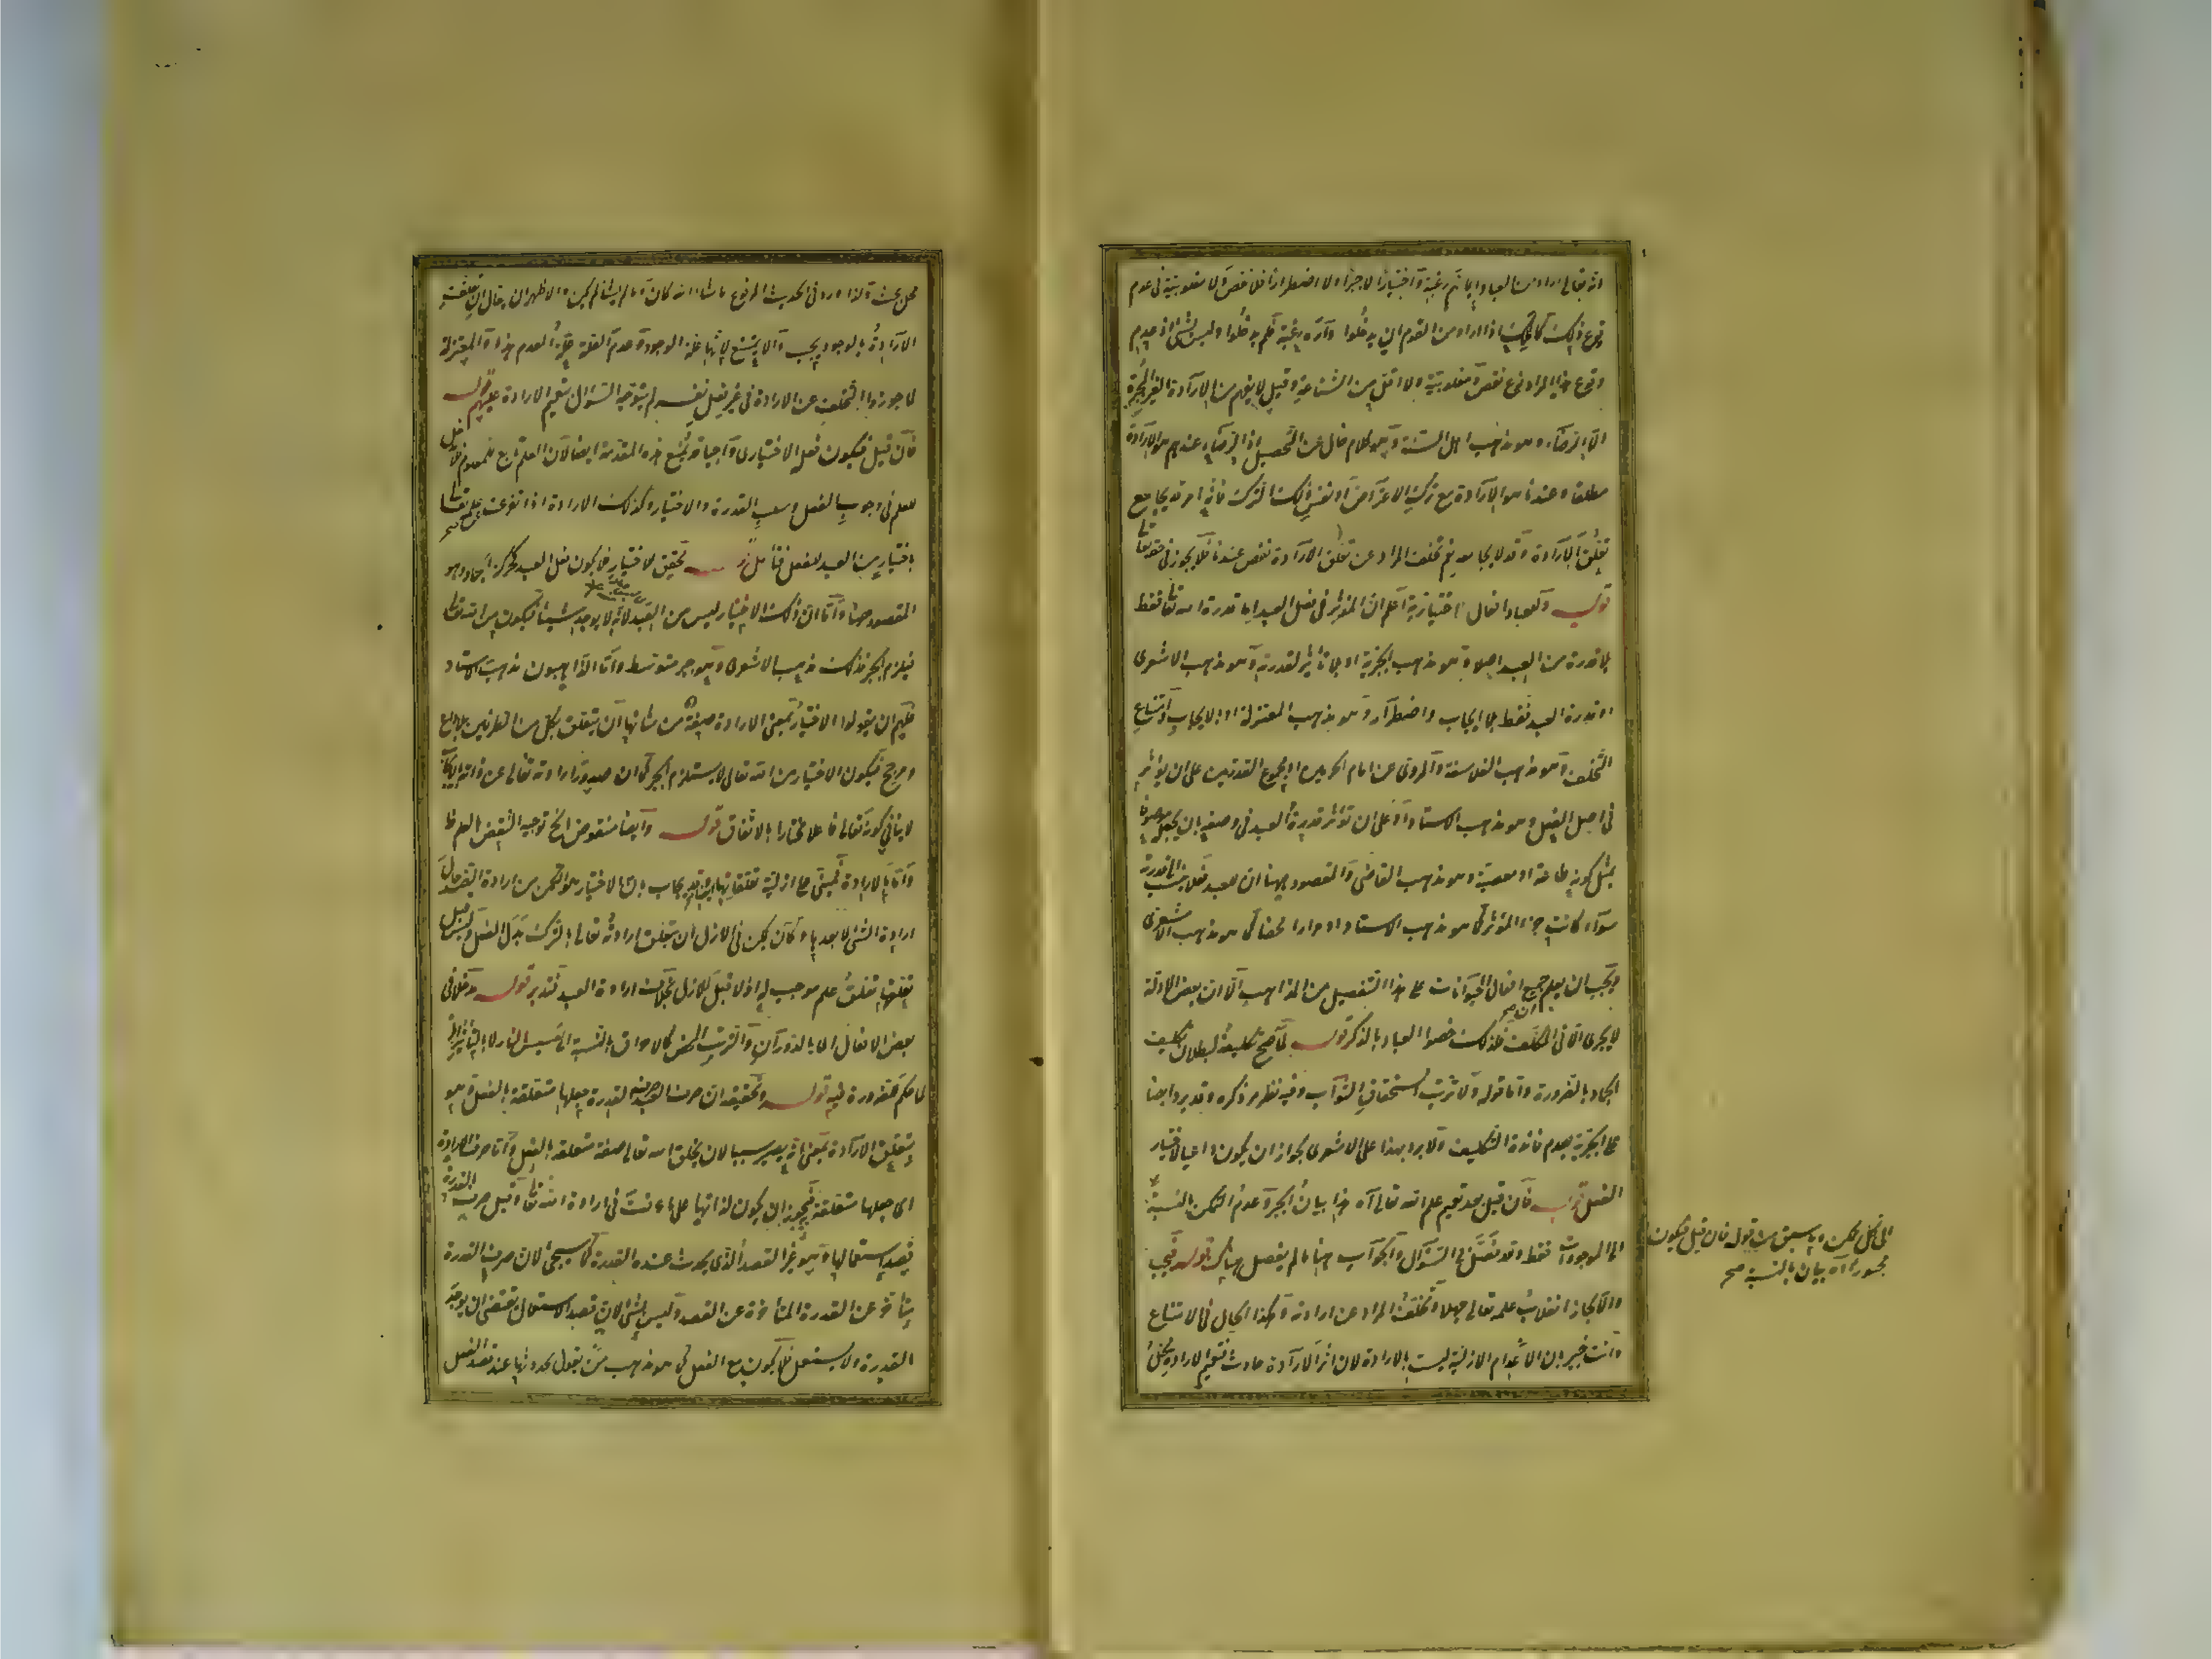 انه تعالى اراد من العباد ايمانهم رغبة واختيارا لا جبرا ولا اضطرارا فلا نقص ولا مغلوبية في عدم
وقوع ذلك كالملك اذا اراد من القوم ان يدخلوا داره رغبة فلم يدخلوا وليس بشئ اذ عدم
وقوع هذا المراد نوع نقص ومغلوبية ولا اقل من الشناعة وقيل لا يفهم من الارادة الغير المجبرة
الا الرضاء وهو مذهب اهل السنة وهو كلام خال عن التحصيل اذ الرضاء عندهم هو الارادة
مطلقا وعندنا هو الارادة مع ترك الاعتراض او نفس ذلك الترك فانه امر قد يجامع
تعلق الارادة وقد لا يجامعه ثم تخلف المراد عن تعلق الارادة نقص عندنا فلا يجوز في حقه تعالى
قوله وللعباد افعال اختيارية اعلم ان المؤثر في فعل العبد اما قدرة الله تعالى فقط
بلا قدرة من العبد اصلا وهو مذهب الجبرية او بلا تأثير لقدرته وهو مذهب الاشعري
او قدرة العبد فقط بلا ايجاب واضطرار وهو مذهب المعتزلة او بالايجاب وامتناع
التخلف وهو مذهب الفلاسفة والمروى عن امام الحرمين او مجموع القدرتين على ان يؤثر
في اصل الفعل وهو مذهب الاستاد او على ان تؤثر قدرة العبد في وصفه بان يجعله موصوفا
بمثل كونه طاعة او معصية وهو مذهب القاضى والمقصود ههنا ان للعبد فعلا ينسب الى قدرته
سواء كانت جزء المؤثر كما هو مذهب الاستاد او مدارا محضا كما هو مذهب الاشعري
ويجب ان يعلم جميع افعال الحيوانات على هذا التفصيل من المذاهب الا ان بعض الادلة
لا يجرى الا في المكلف فلذلك خصوا العباد بالذكر قوله لما صح تكليفه لبطلان تكليف
الجماد بالضرورة واما قوله ولا ترتب استحقاق الثواب وفيه نظر مر ذكره وقد يرد ايضا
على الجبرية بعدم فائدة التكليف ولا يرد بهذا على الاشعري لجواز ان يكون داعيا لاختيار
الفعل قوله فان قيل بعد تعميم علم الله تعالى آه هذا بيان الجبر وعدم التمكن بالنسبة
الى الموجودات فقط وقد فصل في السؤال والجواب ههنا ما لم يفصل هناك قوله فيجب
والا لجاز انقلاب علمه تعالى جهلا وتخلف المراد عن ارادته وكذا الحال في الامتناع
وانت خبير بان الاعدام الازلية ليست بالارادة لان اثر الارادة حادث فتعميم الارادة محل
الى كل ممكن وما سبق من قوله فان قيل فيكون
مجبورا آه بيان بالنسبة صح
محل بحث ولذا ورد في الحديث المرفوع ما شاء الله كان وما لم يشأ لم يكن والاظهر ان يقال ان تعلقت
الارادة بالوجود يجب والا يمتنع لانها علة الوجود وعدم العلة علة العدم هذا والمعتزلة
لما جوزوا التخلف عن الارادة في غير فعل نفسه لم يتوجه السؤال بتعميم الارادة عليهم قوله
فان قيل فيكون فعله الاختياري واجبا وتمنع هذه المقدمة ايضا لان العلم تابع للمعلوم فلا مدخل
للعلم في وجوب الفعل وسلب القدرة والاختيار وكذلك الارادة اذا تفرعت على علمه تعالى
باختيار من العبد للفعل فتأمل قوله تحقيق للاختيار فلا يكون فعل العبد كحركة الجماد وهو
المقصود ههنا واما ان ذلك الاختيار ليس من العبد لانه لا يوجد شيئا فيكون من الله تعالى
فيلزم الجبر فذلك مذهب الاشعري وهو جبر متوسط واما الذاهبون مذهب الاستاد
فلهم ان يقولوا الاختيار بمعنى الارادة صفة من شانها ان يتعلق بكل من الطرفين بلا داع
ومرجح فيكون الاختيار من الله تعالى لا يستلزم الجبر كما ان صدور ارادته تعالى عن ذاته بالايجاب
لا ينافي كونه تعالى فاعلا مختارا بالاتفاق قوله وايضا منقوض الخ توجيه النقض بالعلم ظ
واما بالارادة فمبنى على ازلية تعلقاتها
ارادة الشئ لا بعدها وكان يمكن في الازل ان يتعلق ارادته تعالى بالترك بدل الفعل وليس قبل
تعلقها تعلق علم موجب له اذ لا قبل للازل بخلاف ارادة العبد فتدبر قوله مدخلا في
بعض الافعال اما بالدوران والترتب المحض كالاحراق بالنسبة الى مسيس النار لا بالتأثير
لما حكم ضرورة فيه قوله وتحقيقه ان صرف العبد القدرة جعلها متعلقة بالفعل وهو
بتعلق الارادة بمعنى انه يصير سببا لان يخلق الله تعالى صفة متعلقة بالفعل واما صرف الارادة
اى جعلها متعلقة فيجوز ان يكون لذاتها على ما عرفت في ارادة الله تعالى وقيل صرف القدرة
قصد استعمالها وهو غير القصد الذى يحدث عنده القدرة كما سيجئ لان صرف القدرة
متأخر عن القدرة المتأخرة عن القصد وليس بشئ لان قصد الاستعمال يقتضى ان يوجد
القدرة ولا يستعمل فلا يكون مع الفعل كما هو مذهب من يقول بحدوثها عند قصد الفعل